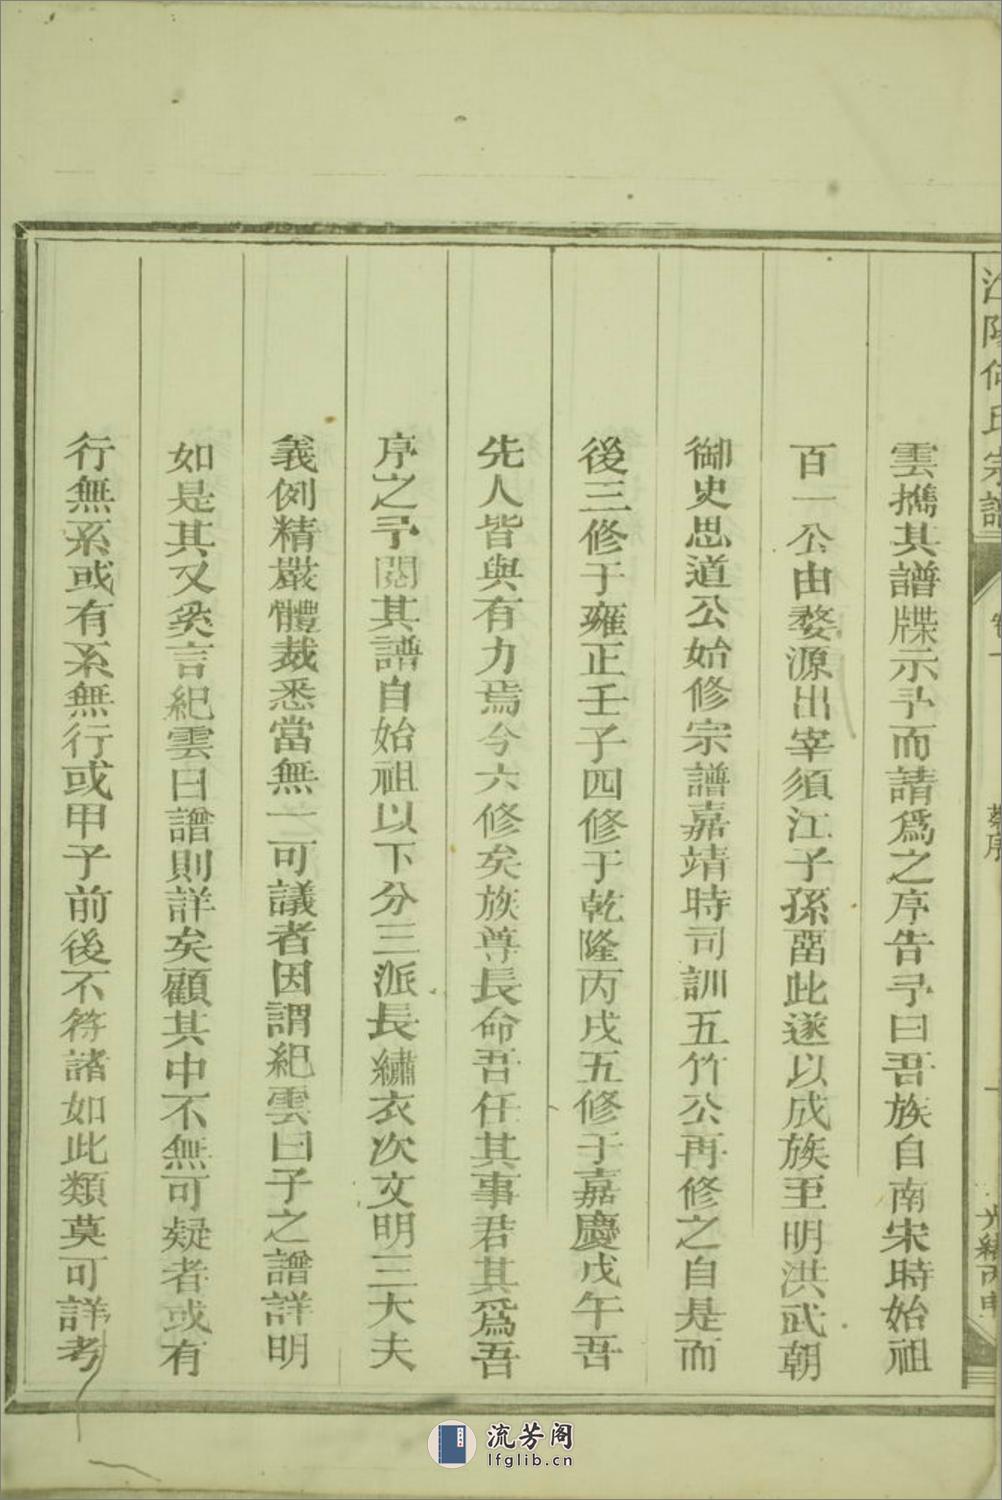 江陽何氏宗譜
蔡序
光緒丙申
雲擕其譜牒示予而請爲之序告予曰吾族自南宋時始祖
百一公由婺源出宰須江子孫畱此遂以成族至明洪武朝
御史思道公始修宗譜嘉靖時司訓五竹公再修之自是而
後三修于雍正壬子四修于乾隆丙戌五修于嘉慶戊午吾
先人皆與有力焉今六修矣族尊長命吾任其事君其爲吾
序之予閱其譜自始祖以下分三派長繡衣次文明三大夫
義例精嚴體裁悉當無一可議者因謂紀雲曰子之譜詳明
如是其又奚言紀雲曰譜則詳矣顧其中不無可疑者或有
行無系或有系無行或甲子前後不符諸如此類莫可詳考
流芳阁
lfglib.cn